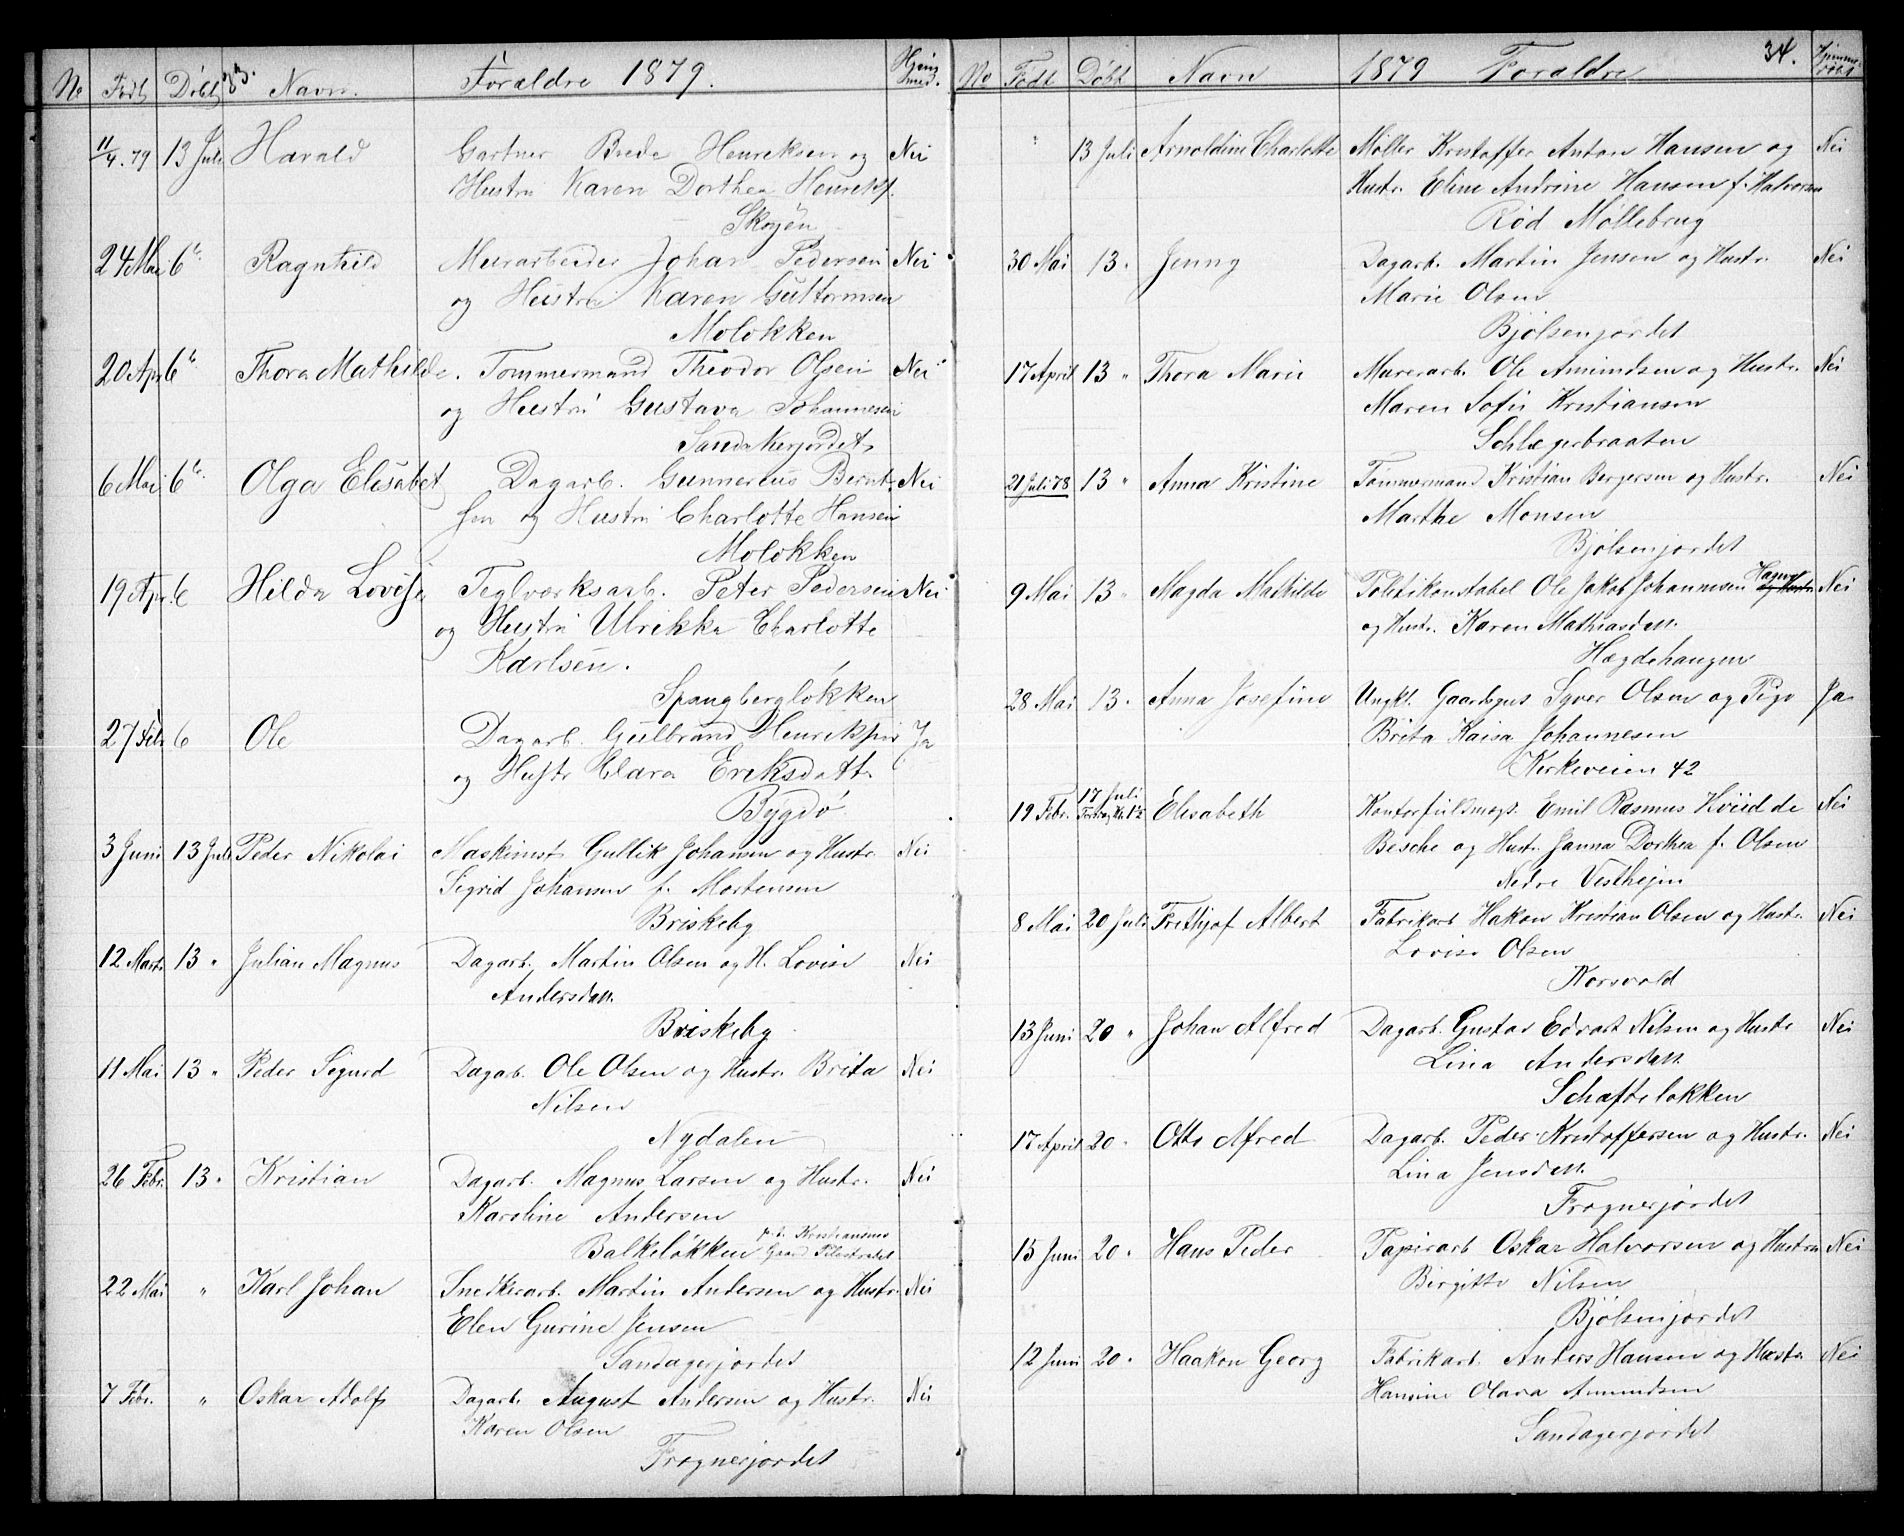 No Født Døbt 33. Navn. Forældre 1879. Hjem
11/4.79 13 Juli Harald Gartner Brede Henriksen og Nei
Hustru Karen Dorthea Henriks.
Skøyen
24 Mai 6te Ragnhild Murarbeider Johan Pedersen Nei
og Hustru Karen Guttormsen
Moløkken
20 Apr 6te Thora Mathilde. Tømmermand Theodor Olsen Nei
og Hustru Gustava Johannesen
Sandakerjordet
6 Mai 6te Olga Elisabet Dagarb. Gunnerius Bernt- Nei
sen og Hustru Charlotte Hansen
Moløkken
19 Apr. 6 Hilda Lovise Teglværksarb. Peter Pedersen Nei
og Hustru Ulrikke Charlotte
Karlsen.
Spangbergløkken
27 Febr 6 Ole Dagarb. Gulbrand Henriksen Ja
og Hustr Clara Eriksdatt
Bygdø
3 Juni 13 Juli Peder Nikolai Maskinist Gullik Johansen og Hustr. Nei
Sigrid Johansen f. Mortensen
Briskeby
12 Marts 13 " Julian Magnus Dagarb. Martin Olsen og H. Lovise Nei
Andersdatt.
Briskeby
11 Mai 13 " Peder Sigurd Dagarb. Ole Olsen og Hustr. Brita Nei
Nilsen
Nydalen
26 Febr. 13 " Kristian Dagarb. Magnus Larsen og Hustr. Nei
Karoline Andersen
Balkeløkken Kristiansens Gaard Pilestrædet
22 Mai " Karl Johan Snedkerarb. Martin Andersen og Hustr. Nei
Elen Gurine Jensen
Sandagerjordet
7 Febr. " Oskar Adolf Dagarb. August Andersen og Hustr. Nei
Karen Olsen
Frognerjordet
No Født Døbt Navn 1879 Forældre 34. Hjemme
" 13 Juli Arnoldine Charlotte Møller Kristoffer Anton Hansen og Nei
Hustr. Eline Andrine Hansen f. Halvorsen
Rød Møllebrug
30 Mai 13 " Jenny Dagarb. Martin Jensen og Hustr. Nei
Marie Olsen
Bjølsenjordet
17 April 13 " Thora Marie Murerarb. Ole Amundsen og Hustr. Nei
Maren Sofie Kristiansen
Schlægerbraaten
21 Juli 78 13 " Anna Kristine Tømmermand Kristian Bergersen og Hustr. Nei
Marthe Monsen
Bjølsenjordet
9 Mai 13 " Magda Mathilde Politikonstabel Ole Jakob Johannesen Nei
og Hustr. Karen Mathiasdatt.
Hægdehaugen
28 Mai 13 " Anna Josefine Ungkl. Gaardsgut Syver Olsen og Pige Ja
Brita Kaisa Johannesen
Kirkeveien 42
19 Febr. 17 Juli Elisabeth Kontorfuldmægt. Emil Rasmus Hviid de Nei
Besche og Hust. Janna Dorthea f. Olsen
Nedre Vestheim
8 Mai 20 Juli Frithjof Albert Fabrikarb. Hakon Kristian Olsen og Hustr. Nei
Lovise Olsen
Korsvold
13 Juni 20 " Johan Alfred Dagarb. Gustav Edvart Nilsen og Hustr Nei
Lina Andersdatt.
Schafteløkken
17 April 20 " Otto Alfred Dagarb. Peder Kristoffersen og Hustr. Nei
Lina Jensdatt.
Frognerjordet
15 Juni 20 " Hans Peder Papirarb Oskar Halvorsen og Hustru Nei
Birgitte Nilsen
Bjølsenjordet
12 Juni 20 " Haakon Georg Fabrikarb. Anders Hansen og Hustr. Nei
Hansine Olava Amundsen
Sandagerjordet